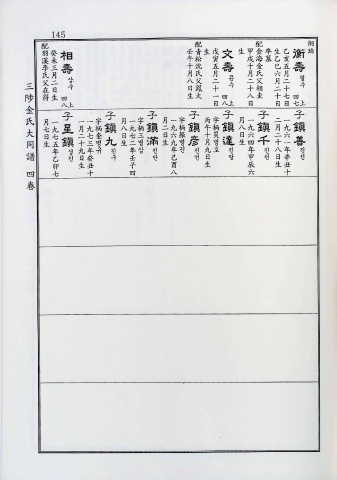 145
三陟金氏大同譜 四卷
衡壽 형수 四八上
乙亥五月二十七日
生乙巳六月二十日
卒墓
配金海金氏父相圭
甲戌十月二十八日
生
文壽 문수 四八上
戊寅五月二十一日
生
配青松沈氏父鳳大
壬午十月八日生
相壽 상수 四八上
癸未三月二日生
配羽溪李氏父在得
子鎭善 진선
一九六一年辛丑十
二月二十八日生
子鎭千 진천
一九六四年甲辰六
月
日生
子鎭達 진달
字柄昊병호
丙午十月九日生
子鎭彦 진언
字柄振병진
一九六九年己酉八
月二日生
子鎭滿 진만
字柄三병삼
一九七二年壬子四
月八日生
子鎭九 진구
字柄奎병규
一九七三年癸丑十
一月二十九日生
子星鎭 성진
一九七五年乙卯七
月七日生